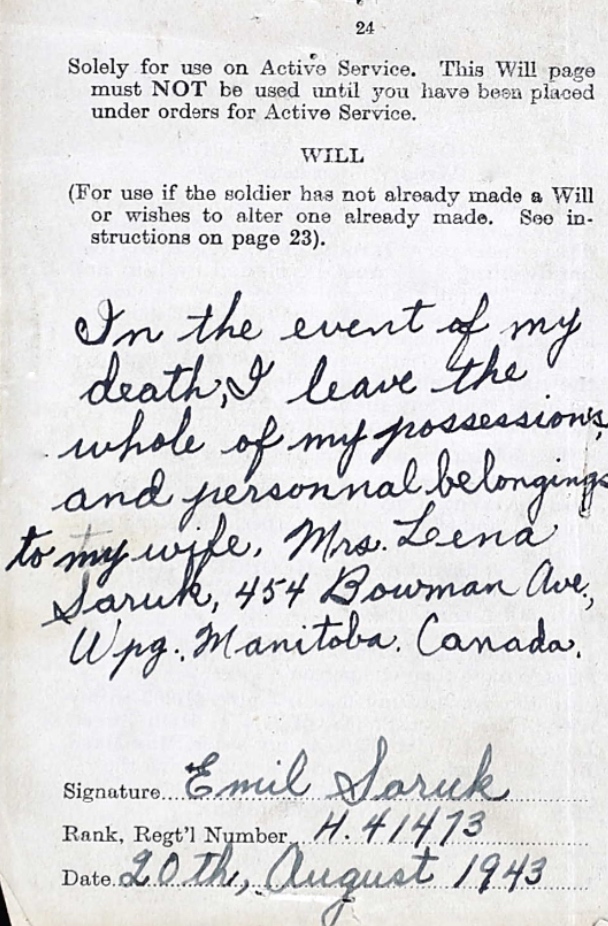 24
Solely for use on Active Service. This Will page
must NOT be used until you have been placed
under orders for Active Service.
WILL
(For use if the soldier has not already made a Will
or wishes to alter one already made. See in-
structions on page 23).
In the event of my
death, I leave the
whole of my possessions,
and personnal belongings
to my wife, Mrs. Lena
Saruk, 454 Bowman Ave,
Wpg. Manitoba. Canada.
Signature Emil Saruk
Rank, Regt'l Number H. 41473
Date 20th, August 1943